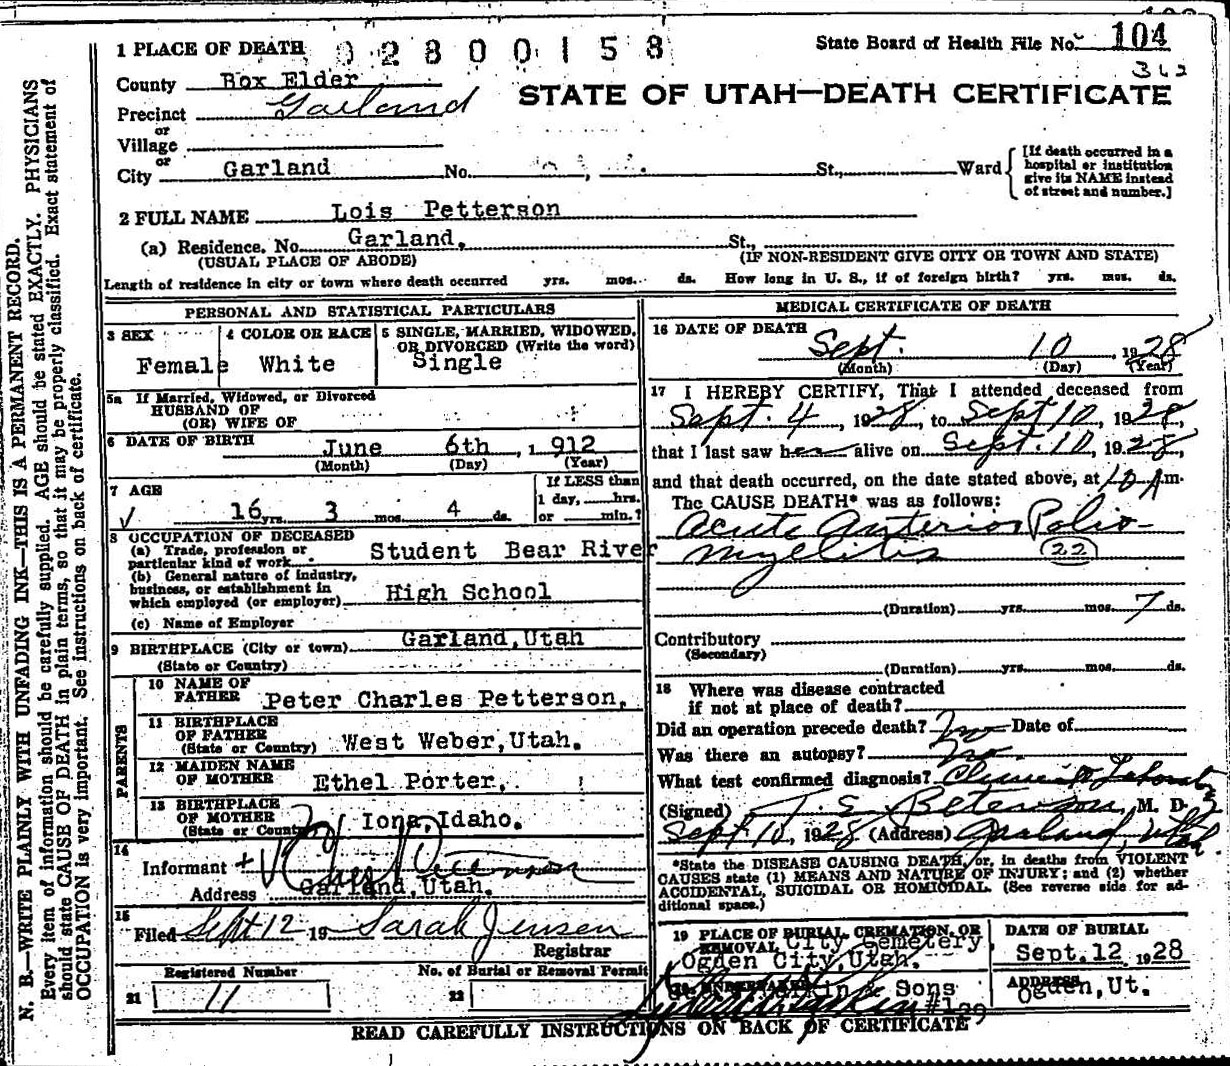 1 PLACE OF DEATH 02800158 State Board of Health File No. 104
County Box Elder 362
STATE OF UTAH—DEATH CERTIFICATE
Precinct Garland
or
Village
or
City Garland No. St., Ward [If death occurred in a hospital or institution give its NAME instead of street and number.]
2 FULL NAME Lois Petterson
(a) Residence. No. Garland, St.,
(USUAL PLACE OF ABODE) (IF NON-RESIDENT GIVE CITY OR TOWN AND STATE)
Length of residence in city or town where death occurred yrs. mos. ds. How long in U. S., if of foreign birth? yrs. mos. ds.
PERSONAL AND STATISTICAL PARTICULARS
3 SEX
Female
4 COLOR OR RACE
White
5 SINGLE, MARRIED, WIDOWED, OR DIVORCED (Write the word)
Single
5a If Married, Widowed, or Divorced
HUSBAND OF
(OR) WIFE OF
6 DATE OF BIRTH June 6th, 1912
(Month) (Day) (Year)
7 AGE
16 yrs. 3 mos. 4 ds.
If LESS than
1 day, hrs.
or min.?
8 OCCUPATION OF DECEASED
(a) Trade, profession or
particular kind of work Student Bear River
(b) General nature of industry,
business, or establishment in
which employed (or employer) High School
(c) Name of Employer
9 BIRTHPLACE (City or town) Garland, Utah
(State or Country)
PARENTS
10 NAME OF
FATHER Peter Charles Petterson,
11 BIRTHPLACE
OF FATHER
(State or Country) West Weber, Utah.
12 MAIDEN NAME
OF MOTHER Ethel Porter,
13 BIRTHPLACE
OF MOTHER
(State or Country) Iona, Idaho.
14
Informant
Address Garland, Utah.
15
Filed Sept 12 19 Sarah Jensen
Registrar
Registered Number No. of Burial or Removal Permit
21 11 22
MEDICAL CERTIFICATE OF DEATH
16 DATE OF DEATH
Sept. 10, 1928
(Month) (Day) (Year)
17 I HEREBY CERTIFY, That I attended deceased from
Sept. 4, 1928, to Sept 10, 1928,
that I last saw her alive on Sept. 10, 1928,
and that death occurred, on the date stated above, at 10 A m.
The CAUSE DEATH* was as follows:
Acute Anterior Polio-
myelitis (22)
(Duration) yrs. mos. 7 ds.
Contributory
(Secondary)
(Duration) yrs. mos. ds.
18 Where was disease contracted
if not at place of death?
Did an operation precede death? No Date of
Was there an autopsy? No.
What test confirmed diagnosis?
(Signed) M. D.
Sept 10, 1928 (Address) Garland, Utah.
*State the DISEASE CAUSING DEATH, or, in deaths from VIOLENT
CAUSES state (1) MEANS AND NATURE OF INJURY; and (2) whether
ACCIDENTAL, SUICIDAL OR HOMICIDAL. (See reverse side for ad-
ditional space.)
19 PLACE OF BURIAL, CREMATION, OR
REMOVAL City Cemetery,
Ogden City, Utah.
DATE OF BURIAL
Sept. 12 1928
20 UNDERTAKER Larkin & Sons
#129
ADDRESS
Ogden, Ut.
READ CAREFULLY INSTRUCTIONS ON BACK OF CERTIFICATE
N. B.—WRITE PLAINLY WITH UNFADING INK—THIS IS A PERMANENT RECORD.
Every item of information should be carefully supplied. AGE should be stated EXACTLY. PHYSICIANS
should state CAUSE OF DEATH in plain terms, so that it may be properly classified. Exact statement of
OCCUPATION is very important. See instructions on back of certificate.